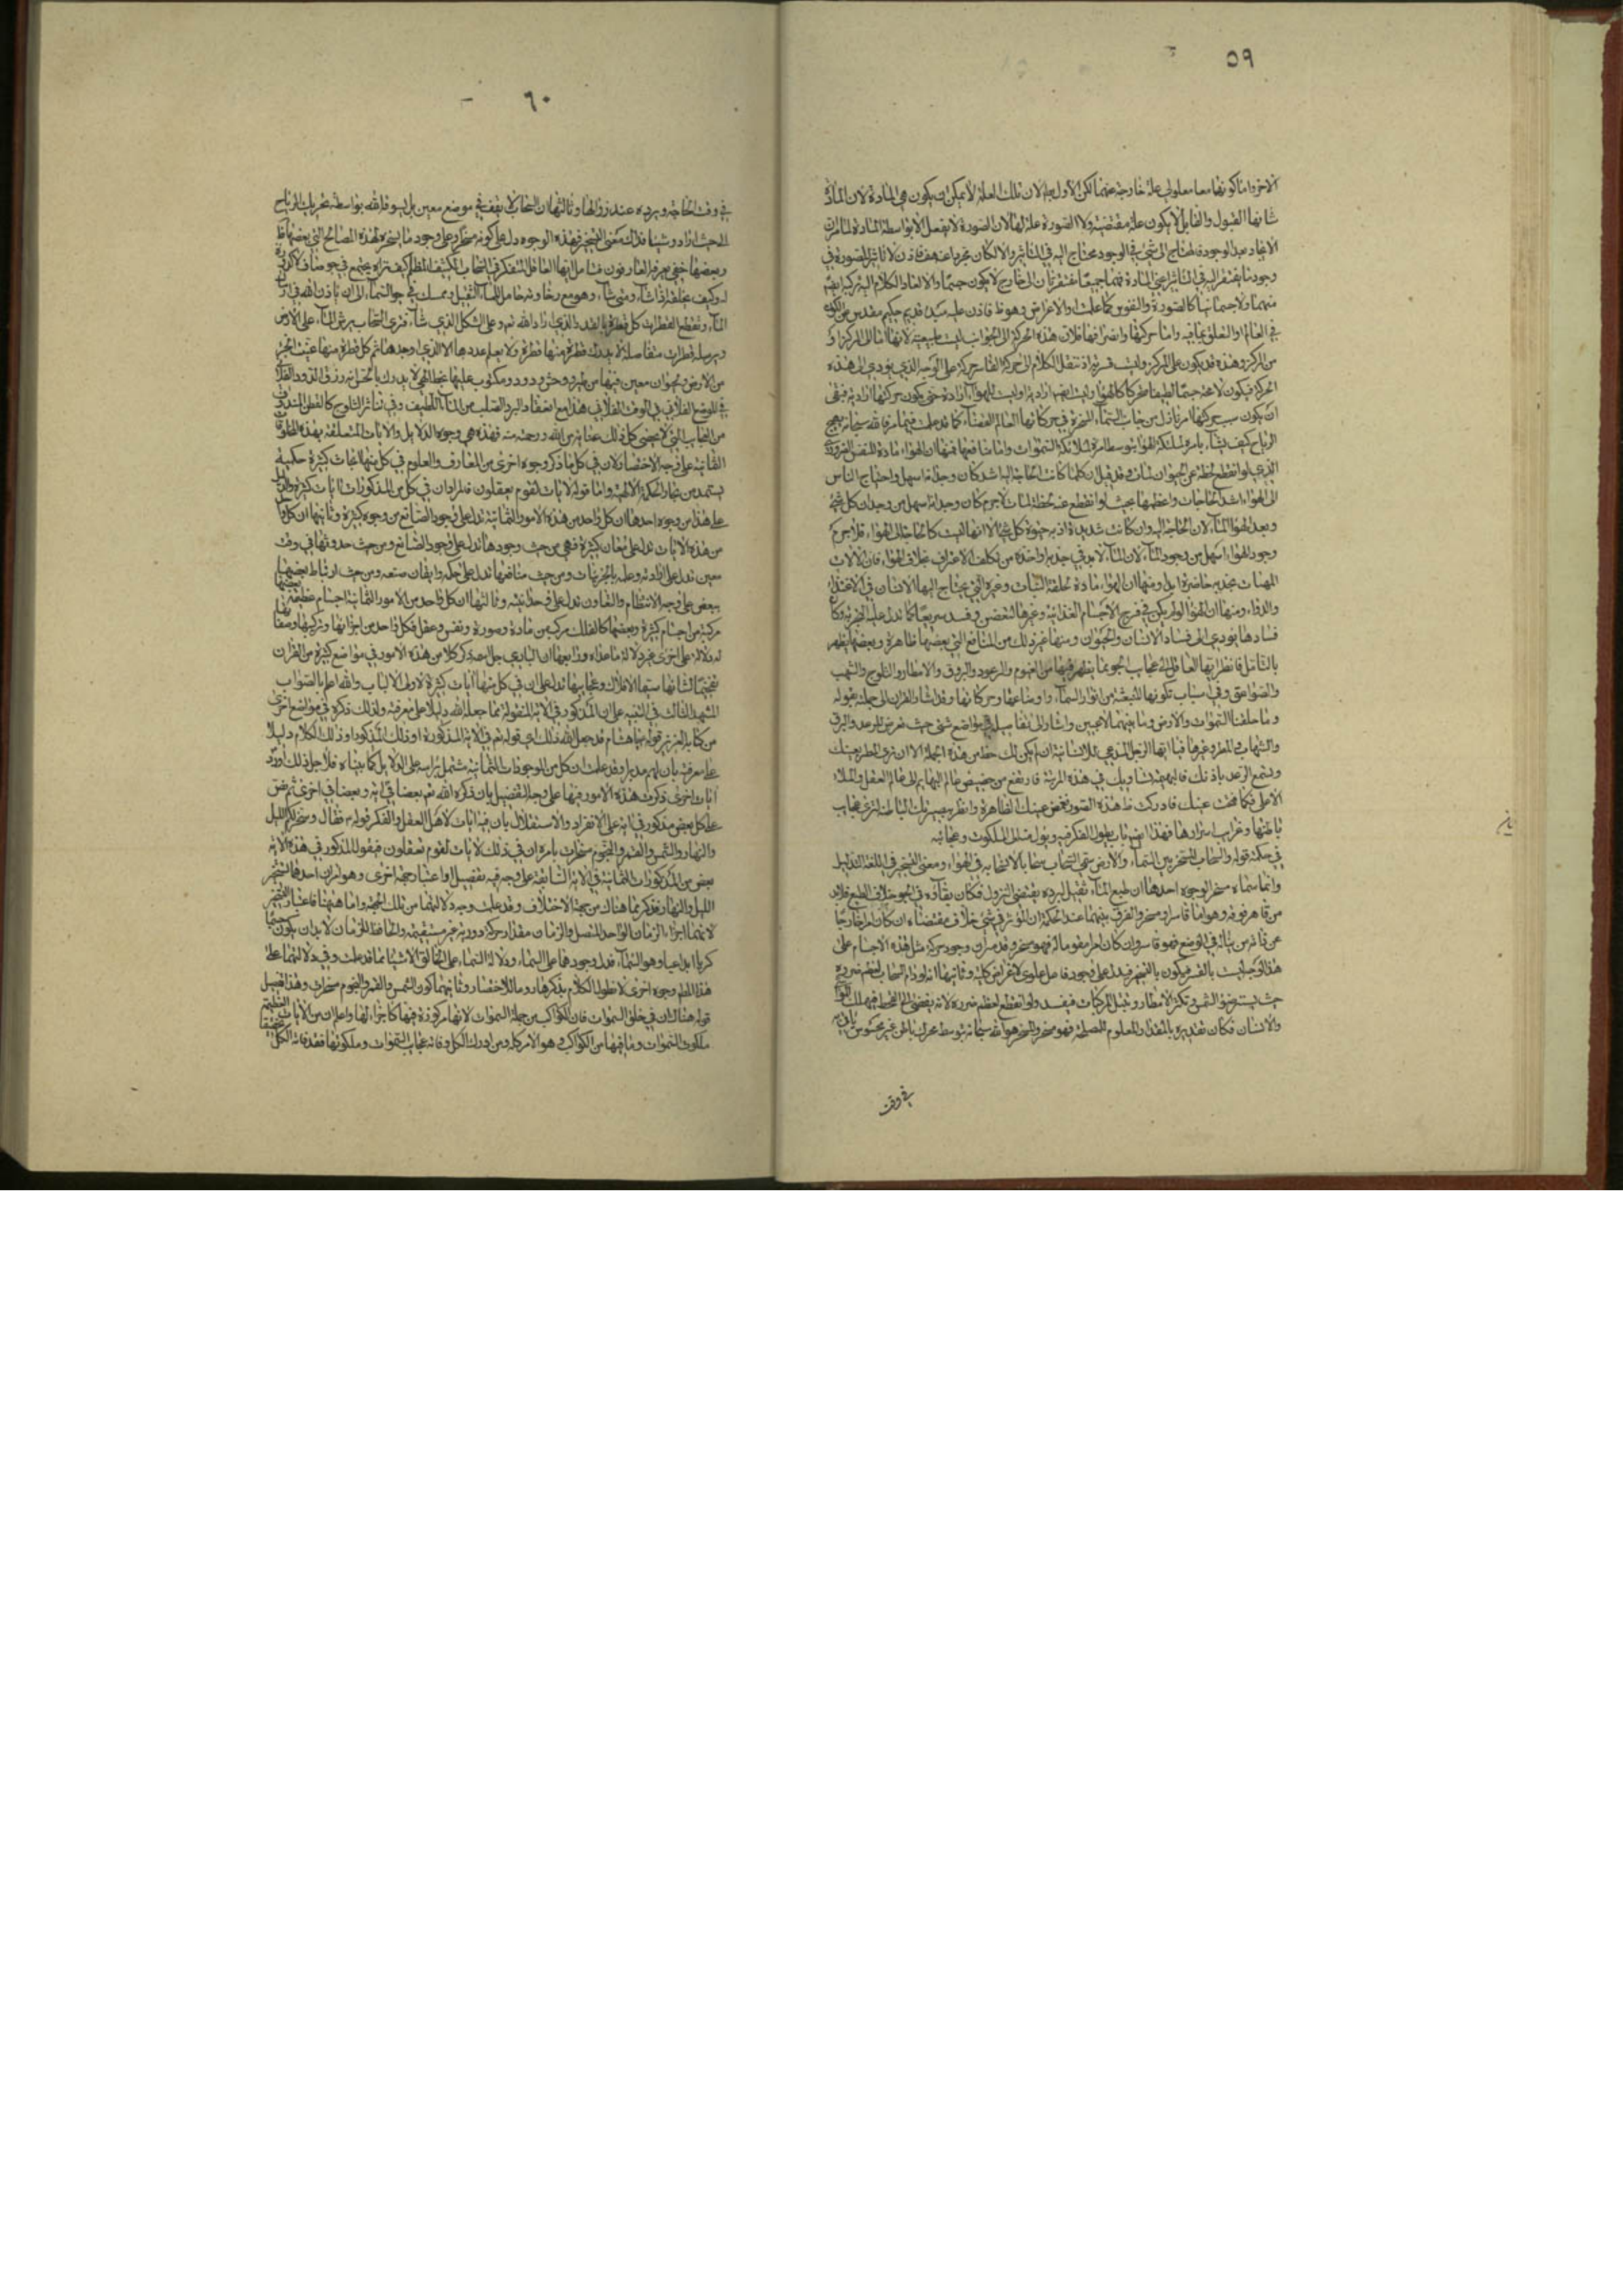 ٥٩
الاخر واما كونهما معا معلولى علة خارجة عنهما لكن الاول لان تلك العلة لا يمكن ان يكون هى المادة لان المادة
شانها القبول والقابل لا يكون علة مقتضية ولا الصورة علة لها لان الصورة لا تفعل الا بواسطة المادة
الايجاد بعد الوجود فالمحتاج الى شئ فى الوجود محتاج اليه فى التاثير والا لكان فاذن لا تاثير للصورة فى
وجود ما يفتقر اليه فى التاثير اعنى المادة فهما جميعا مفتقرتان الى خارج لا يكون جسما والا لعاد الكلام اليه
منهما ولا جسمانيا كالصورة والنفوس كما علمت او الاعراض وهو ظ فاذن عليه قديم حكيم مقدس عن الكون
فى العالم او التعلق بما فيه واما حركتها وانصرافها فلان هذه الحركة الى الجوانب ليست طبيعية لانها اما الى المركز او
من المركز وهذه قد يكون على المركز وليست قسرية اذ ننقل الكلام الى حركة القاسر على الوجه الذى يؤدى الى هذه
الحركة فيكون لا محة جسما لطيفا متحركا كالهواء وليست ايضا ارادية اذ ليست للهواء ارادة حتى يكون حركتها ارادية فبقى
ان يكون سبب حركتها امر نازل من جانب السماء
الرياح كيف يشاء بامره ملائكة الهواء بوساطة امره ملائكة السموات واما منافعها فمنها ان الهواء مادة للنفس الضرورى
الذى لو انقطع لحظة عن الحيوان لمات وقد قيل ان كلما كانت الحاجة اليه اشد كان وجدانه اسهل واحتياج الناس
الى الهواء اشد الحاجات واعظمها بحيث لو انقطع عنه لحظة لمات لا جرم كان وجدانه اسهل من وجدان كل شئ
وبعد الهواء الماء لان الحاجة اليه وان كانت شديدة اذ به حيوة كل شئ الا انها ليست كالحاجة الى الهواء فلا جرم
وجود الهواء اسهل من وجود الماء لان الماء لا بد فى جذبه واخذه من تكلف الاغتراف بخلاف الهواء فان الآلات
المهيات لجذبه حاضرة ابدا ومنها ان الهواء مادة لخلقة النبات وغيره التى يحتاج اليها الانسان فى الاغتذاء
والدواء ومنها ان الهواء لو لم يكن فى فرج الاجسام الغذائية وغيرها لتعفن وفسد سريعا كما تدل عليه التجربة وكان
فسادها يؤدى الى فساد الانسان والحيوان ومنها غير ذلك من المنافع التى بعضها ظاهرة وبعضها يظهر
بالتامل فانظر ايها العاقل الى عجايب الجو بما يظهر فيها من الغيوم والرعود والبروق والامطار والثلوج والشهب
والصواعق وفى اسباب تكونها المنبعثة من انوار السماء واوضاعها وحركاتها وقد اشار القران الى جملته بقوله
وما خلقنا السموات والارض وما بينهما لاعبين واشار الى تفاصيله فى مواضع شتى حيث تعرض للرعد والبرق
والشهاب والمطر وغيرها فيا ايها الرجل المدعى للانسانية ان لم يكن لك حظ من هذه الجملة الا ان ترى المطر بعينك
وتسمع الرعد باذنك فالبهيمة تساويك فى هذه المرتبة فارتفع من حضيض عالم البهايم الى عالم العقل والملاء
الاعلى فكما فتحت عينك فادركت ظاهر هذه الصور فغمض عينك الظاهرة وانظر ببصيرتك الباطنة لترى عجايب
باطنها وغرايب اسرارها فهذا ايضا باب يطول الفكر فيه ويؤل الى الملكوت وعجائبه
فى حكمة قوله والسحاب المسخر بين السماء والارض سمى السحاب سحابا لانسحابه فى الهواء ومعنى التسخير فى اللغة التذليل
وانما سماه مسخرا لوجوه احدها ان طبع الماء ثقيل لبرده يقتضى النزول فكان بقاؤه فى الجو خلاف الطبع فلا بد
من قاهر فوقه وهو اما قاسر او مسخر والفرق بينهما عند الحكماء ان المؤثر فى شئ خلاف مقتضاه ان كان امرا خارجا
عن ذاته من يباينه فى الوضع فهو قاسر وان كان امرا مقوما له فهو مسخر وقد مر ان وجود حركة مثل هذه الاجسام على
هذا الوجه ليست بالقسر فيكون بالتسخير فيدل على وجود فاعل علوى لاغراض كلية وثانيها انه لو دام السحاب لعظم ضرره
حيث يستر ضوء الشمس وتكثر الامطار وتبتل المركبات فيفسد ولو انقطع لعظم ضرره لانه يفضى الى القحط فيهلك
والانسان فكان تقديره بالمقدار المعلوم للمصلحة فهو مسخر والمسخر هو الله سبحانه بتوسط محرك باطن غير محسوس
فى وقت
٦٠
فى وقت الحاجة ويرده عند زوالها وثالثها ان السحاب لا يقف فى موضع معين بل يسوقه الله بواسطة تحريك الرياح
الى حيث اراد وشاء فذلك معنى التسخير فهذه الوجوه دل على كونه مسخرا وعلى وجود ما يسخره لهذه المصالح التى بعضها ظ
وبعضها خفى يعرفه العارفون فتامل ايها العاقل المتفكر فى السحاب الكثيف المظلم كيف تراه يجتمع فى جو صاف لا كدورة
له وكيف يخلقه اذا شاء ومتى شاء وهو مع رخاوته حامل للماء الثقيل وممسك فى جو السماء الى ان ياذن الله فى ارسال
الماء وتقطيع القطرات كل قطرة بالقدر الذى اراد الله تع وعلى الشكل الذى شاء فترى السحاب يرش الماء على الارض
ويرسله قطرات متفاصلة لا يدرك قطرة منها قطرة ولا يعلم عددها الا الذى اوجدها ثم كل قطرة منها عينت لجزء
من الارض ولحيوان معين فيها من طير ووحش ودود ومكتوب عليها بخط الهى لا يدرك بالحس انه رزق الدود الفلانى
فى الموضع الفلانى فى الوقت الفلانى هذا مع انعقاد البرد الصلب من الماء اللطيف وفى تناثر الثلوج كالقطن المندوف
من العجايب التى لا تحصى كل ذلك عناية من الله ورحمة منه فهذه هى وجوه الدلايل والايات المتعلقة بهذه الامور
الثمانية على وجه الاختصار لان فى كل ما ذكر وجوه اخرى من المعارف والعلوم فى كل منها ابحاث كثيرة حكمية
يستمد من بحار الحكمة الالهية واما قوله لايات لقوم يعقلون فالمراد ان فى كل من المذكورات ايات كثيرة والدليل
على هذا من وجوه احدها ان كل واحد من هذه الامور الثمانية تدل على وجود الصانع من وجوه كثيرة وثانيها ان كل واحد
من هذه الايات تدل على معان كثيرة فهى من حيث وجودها تدل على وجود الصانع ومن حيث حدوثها فى وقت
معين تدل على ارادته وعلمه بالجزئيات ومن حيث منافعها تدل على حكمته واتقان صنعه ومن حيث ارتباط بعضها
ببعض على وجه الانتظام والتعاون تدل على وحدانيته وثالثها ان كل واحد من الامور الثمانية اجسام عظيمة
مركبة من اجسام كثيرة وبعضها كالفلك مركب من مادة وصورة ونفس وعقل فكل واحد من اجزائها وتركيبها وصفاتها
له دلالة على اخرى غير دلالة ما عداه ورابعها ان البارى جل مجده ذكر كلا من هذه الامور فى مواضع كثيرة من القران
تفخيما لشانها سيما الافلاك وعجايبها تدل على ان فى كل منها ايات كثيرة لاولى الالباب والله اعلم بالصواب
المشهد الثالث فى التنبيه على ان المذكور فى الاية المنقولة مما جعله الله دليلا على معرفته ولذلك ذكره فى مواضع اخرى
من كتابه العزيز قوله يا هشام قد جعل الله ذلك اى قوله تع فى الاية المذكورة او ذلك المذكور او ذلك الكلام دليلا
على معرفته بان لهم مدبرا وقد علمت ان كل من الموجودات الثمانية مشتمل براسه على الدلايل كما بيناه فلاجل ذلك اورد
ايات اخرى ذكرت هذه الامور فيها على وجه التفصيل بان ذكره الله تع بعضا فى اية وبعضا فى اخرى ثم نص
على كل بعض مذكور فى اية على الانفراد والاستقلال بان فيه ايات لاهل العقل والفكر قوله فقال وسخر لكم الليل
والنهار والشمس والقمر والنجوم مسخرات بامره ان فى ذلك لايات لقوم يعقلون فيقول المذكور فى هذه الاية
بعض من المذكورات الثمانية فى الاية السابقة على وجه فيه تفصيل واعتبار جهة اخرى وهو امران احدهما تسخير
الليل والنهار فقد ذكرهما هناك من جهة الاختلاف وقد علمت وجه دلالتهما من تلك الجهة واما هيهنا فاعتبار التسخير
لانهما اجزاء الزمان الواحد المتصل والزمان مقدار حركة دورية غير مستقيمة والحافظ للزمان لا بد ان يكون جسما
كريا ابداعيا وهو السماء فدل وجودهما على السماء ودلالة السماء على الخالق الاشياء ما قد علمت وفى دلالتهما على
هذا المطلب وجوه اخرى لا نطول الكلام بذكرها روما للاختصار وثانيهما كون الشمس والقمر والنجوم مسخرات وهذا تفصيل
قوله هناك ان فى خلق السموات فان الكواكب من جملة السموات لانها مركوزة فيها كاجزاء لها واعلم ان من الايات العظيمة
ملكوت السموات وما فيها من الكواكب وهو الامر كله ومن ادرك الكل وفاته عجايب السموات وملكوتها فقد فاته الكل